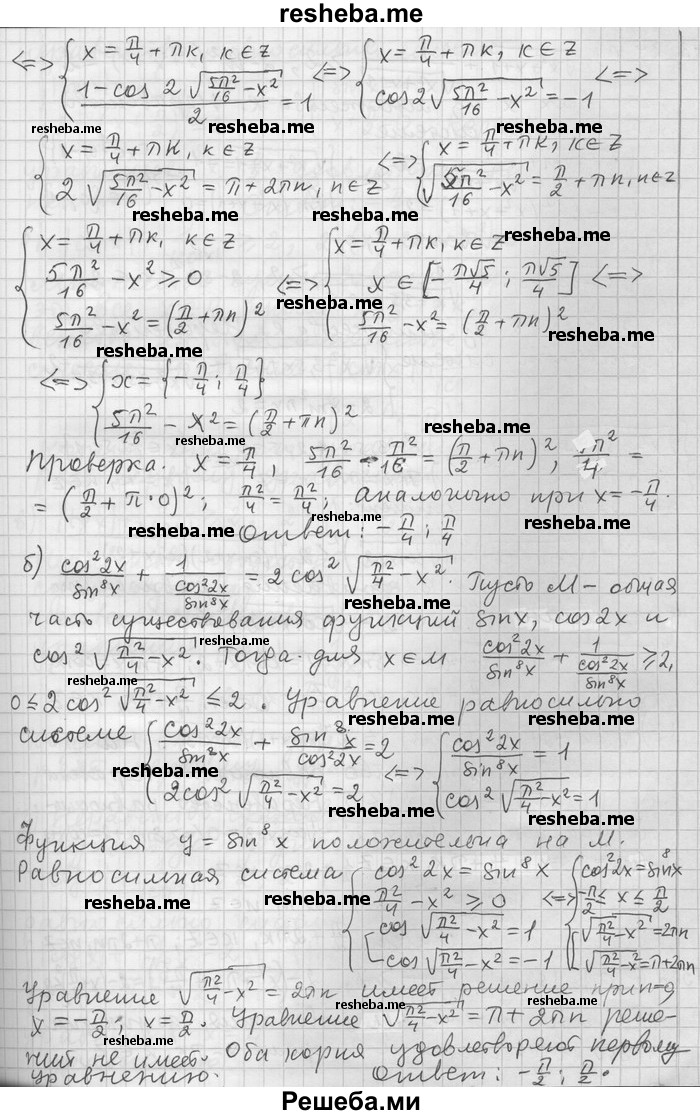 resheba.me
<=> { x = π/4 + πk, k∈Z ; (1 - cos 2√(5π²/16 - x²))/2 = 1 <=> { x = π/4 + πk, k∈Z ; cos 2√(5π²/16 - x²) = -1 <=>
resheba.me resheba.me
{ x = π/4 + πk, k∈Z ; 2√(5π²/16 - x²) = π + 2πn, n∈Z <=> { x = π/4 + πk, k∈Z ; √(5π²/16 - x²) = π/2 + πn, n∈Z
resheba.me resheba.me
{ x = π/4 + πk, k∈Z ; 5π²/16 - x² ⩾ 0 ; 5π²/16 - x² = (π/2 + πn)² <=> { x = π/4 + πk, k∈Z ; x ∈ [-π√5/4 ; π√5/4] ; 5π²/16 - x² = (π/2 + πn)² <=>
resheba.me resheba.me
resheba.me resheba.me
<=> { x = {-π/4 ; π/4} ; 5π²/16 - x² = (π/2 + πn)²
resheba.me resheba.me
Проверка. x = π/4, 5π²/16 - π²/16 = (π/2 + πn)², π²/4 =
= (π/2 + π·0)²; π²/4 = π²/4; аналогично при x = -π/4.
resheba.me Ответ: -π/4 ; π/4 resheba.me
б) cos²2x/sin⁸x + 1/(cos²2x/sin⁸x) = 2 cos² √(π²/4 - x²). Пусть M - общая
resheba.me
часть существования функций sin x, cos 2x и
resheba.me resheba.me
cos² √(π²/4 - x²). Тогда для x∈M cos²2x/sin⁸x + 1/(cos²2x/sin⁸x) ⩾ 2,
0 ≤ 2 cos² √(π²/4 - x²) ≤ 2. Уравнение равносильно
resheba.me resheba.me
системе { cos²2x/sin⁸x + sin⁸x/cos²2x = 2 ; 2cos² √(π²/4 - x²) = 2 <=> { cos²2x/sin⁸x = 1 ; cos² √(π²/4 - x²) = 1
resheba.me resheba.me
Функция y = sin⁸x положительна на M.
Равносильная система { cos²2x = sin⁸x ; π²/4 - x² ⩾ 0 ; [ cos √(π²/4 - x²) = 1 ; cos √(π²/4 - x²) = -1 <=> { cos²2x = sin⁸x ; -π/2 ≤ x ≤ π/2 ; [ √(π²/4 - x²) = 2πn ; √(π²/4 - x²) = π + 2πn
resheba.me resheba.me
Уравнение √(π²/4 - x²) = 2πn имеет решение при n=0
resheba.me
x = -π/2 ; x = π/2. Уравнение √(π²/4 - x²) = π + 2πn реше-
resheba.me
ния не имеет. Оба корня удовлетворяют первому
уравнению. Ответ: -π/2 ; π/2.
Решеба.ми